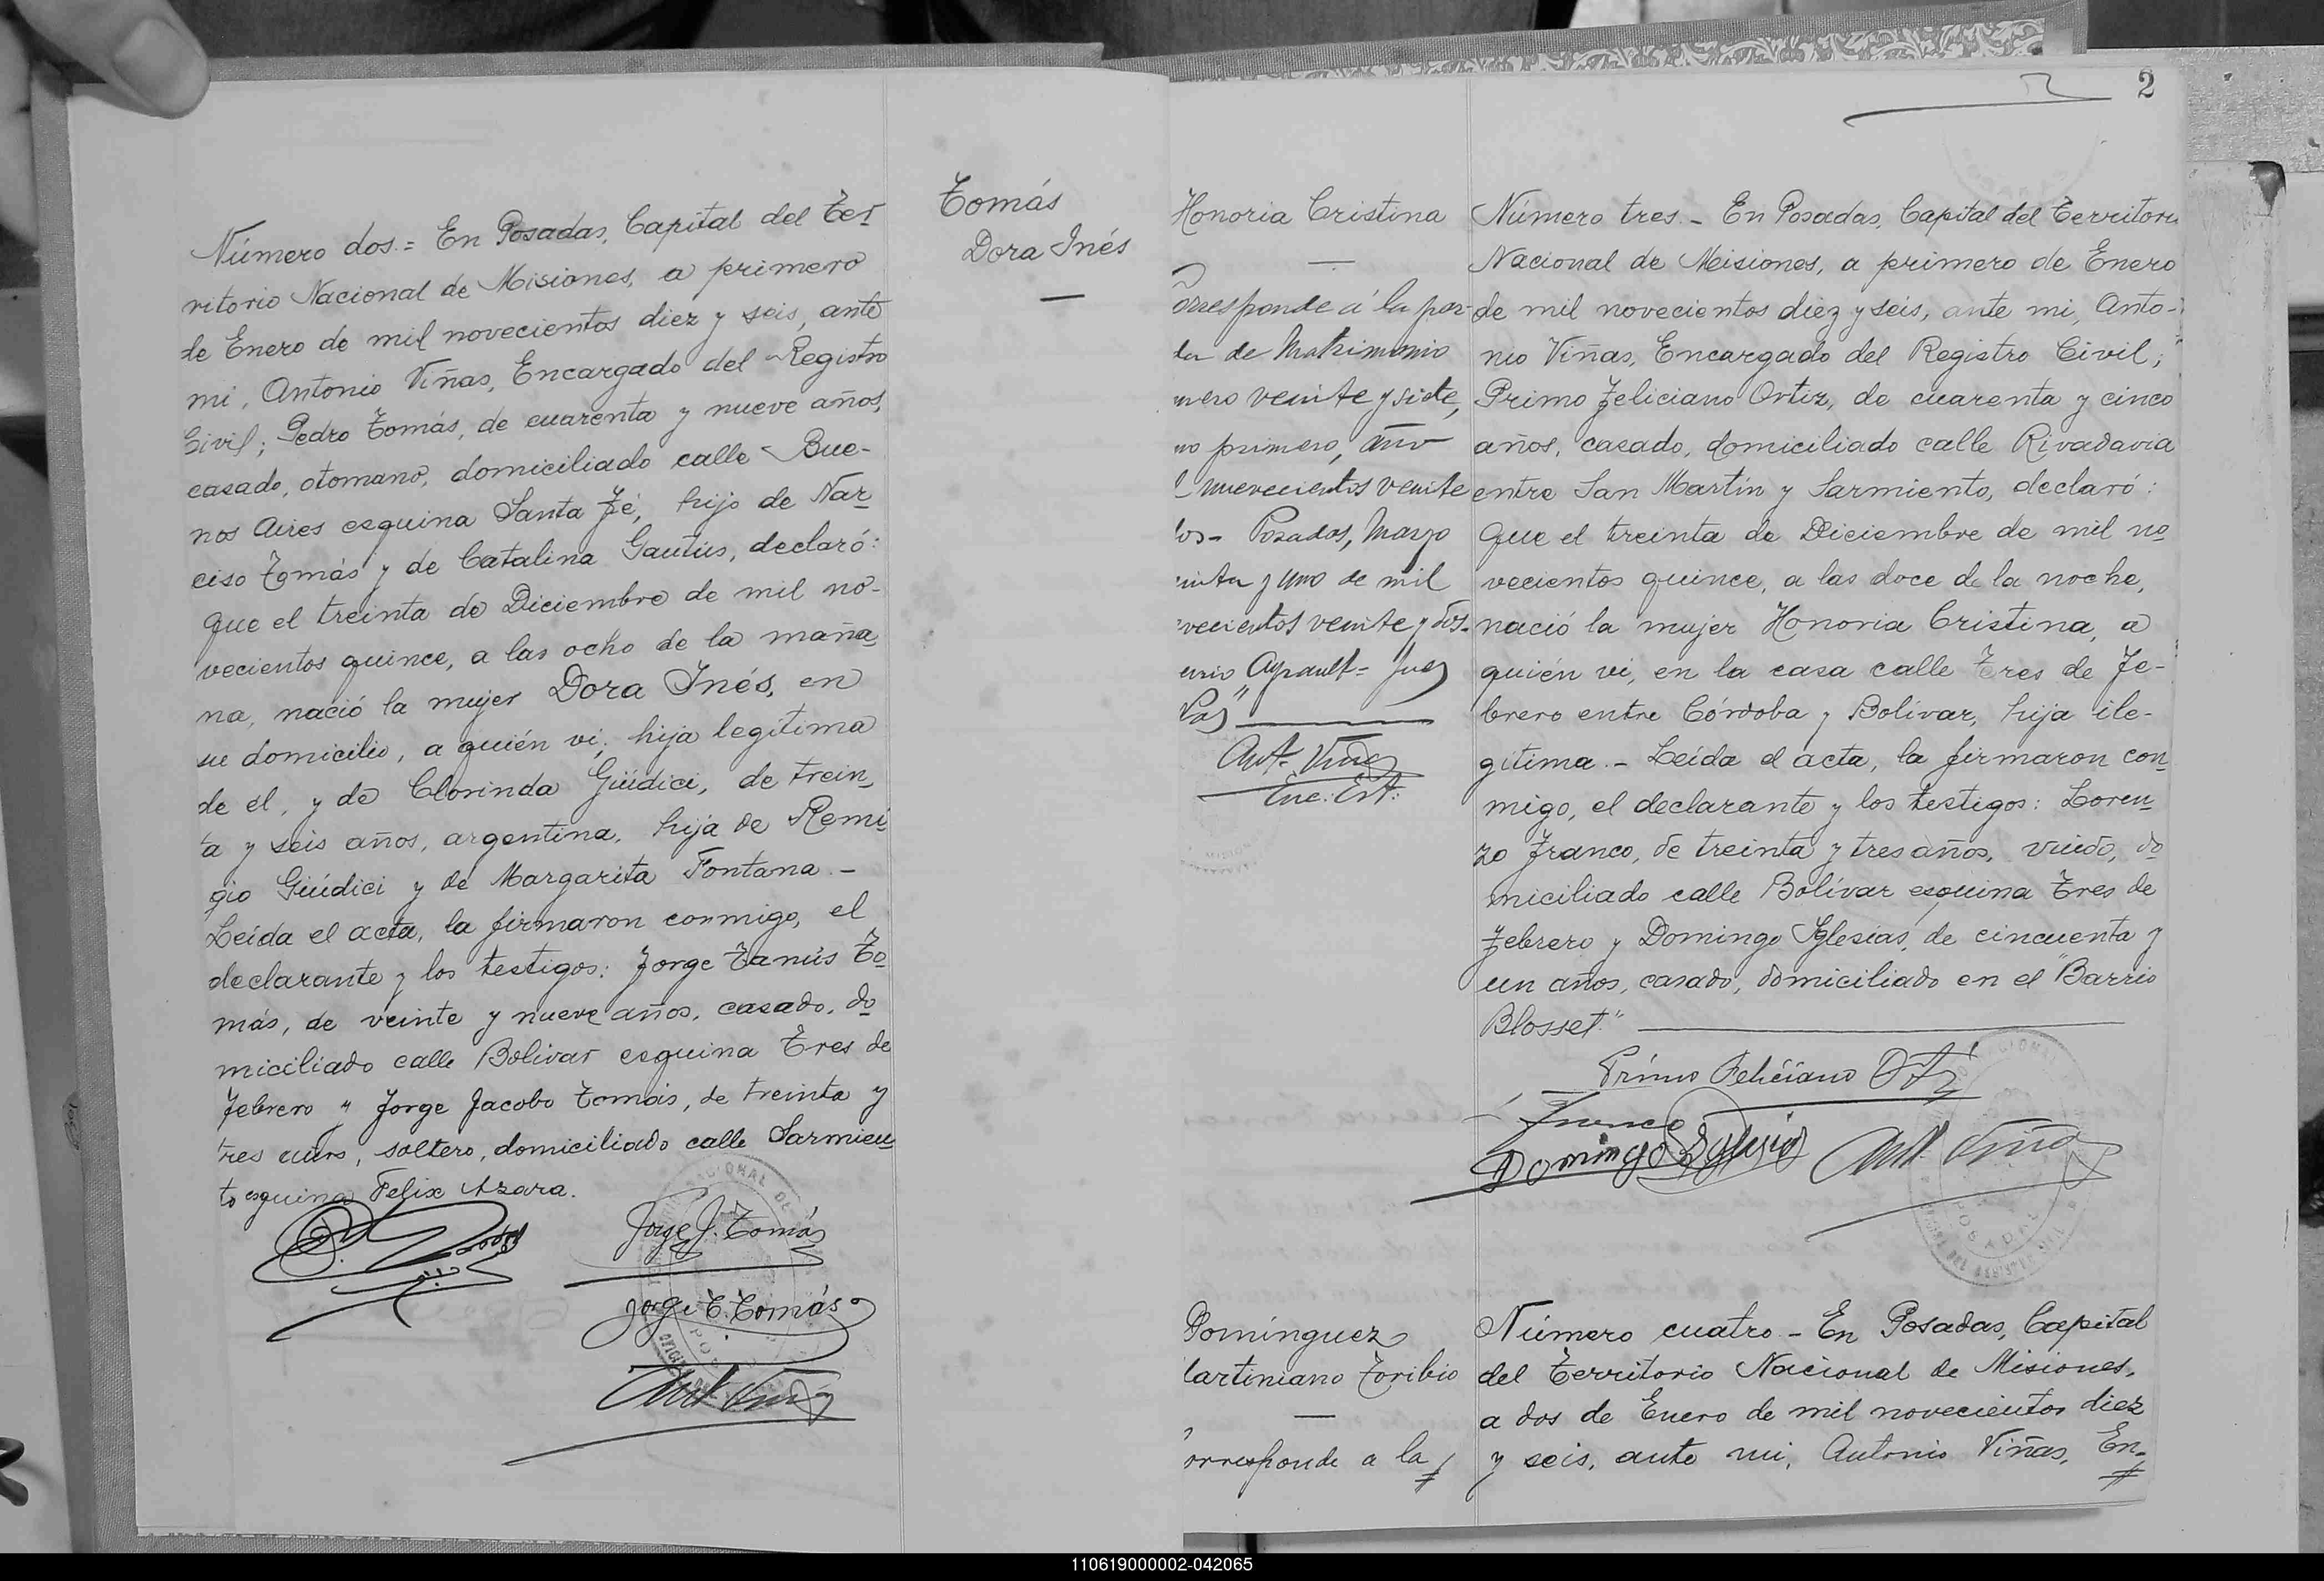 Número dos.= En Posadas, Capital del Ter
ritorio Nacional de Misiones, a primero
de Enero de mil novecientos diez y seis, ante
mi, Antonio Viñas, Encargado del Registro
Civil; Pedro Tomás, de cuarenta y nueve años,
casado, otomano, domiciliado calle Bue-
nos Aires esquina Santa Fé, hijo de Nar
ciso Tomás y de Catalina Gautús, declaró:
Que el treinta de Diciembre de mil no-
vecientos quince, a las ocho de la maña
na, nació la mujer Dora Inés, en
su domicilio, a quién vi; hija legítima
de él, y de Clorinda Giúdici, de trein
ta y seis años, argentina, hija de Remi
gio Giúdici y de Margarita Fontana.-
Leída el acta, la firmaron conmigo, el
declarante y los testigos: Jorge Tanús To
más, de veinte y nueve años, casado, do
miciliado calle Bolivar esquina Tres de
Febrero y Jorge Jacobo Tomás, de treinta y
tres años, soltero, domiciliado calle Sarmien
to esquina Felix Azara.
Jorge J. Tomás
Jorge T. Tomás
Ant. Viñas
Tomás
Dora Inés
—
2
Honoria Cristina
—
orresponde á la par-
da de Matrimonio
mero veinte y siete,
mo primero, año
l nuevecientos veinte
dos- Posadas, Marzo
einta y uno de mil
vecientos veinte y dos.
Juez
Paz"
Ant. Viñas
Enc. Est.
Número tres.- En Posadas, Capital del Territori
Nacional de Misiones, a primero de Enero
de mil novecientos diez y seis, ante mi, Anto-
nio Viñas, Encargado del Registro Civil;
Primo Feliciano Ortiz, de cuarenta y cinco
años, casado, domiciliado calle Rivadavia
entre San Martín y Sarmiento, declaró:
Que el treinta de Diciembre de mil no
vecientos quince, a las doce de la noche,
nació la mujer Honoria Cristina, a
quién vi, en la casa calle Tres de Fe-
brero entre Córdoba y Bolivar, hija ile-
gítima.- Leída el acta, la firmaron con
migo, el declarante y los testigos: Loren
zo Franco, de treinta y tres años, viudo, do
miciliado calle Bolívar esquina Tres de
Febrero y Domingo Iglesias, de cincuenta y
un años, casado, domiciliado en el "Barrio
Blosset."
Primo Feliciano Ortiz
Franco
Domingo Iglesias Ant. Viñas
Domínguez
artiniano Toribio
—
orresponde a la
Número cuatro.- En Posadas, Capital
del Territorio Nacional de Misiones,
a dos de Enero de mil novecientos diez
y seis, ante mi, Antonio Viñas, En-
110619000002-042065